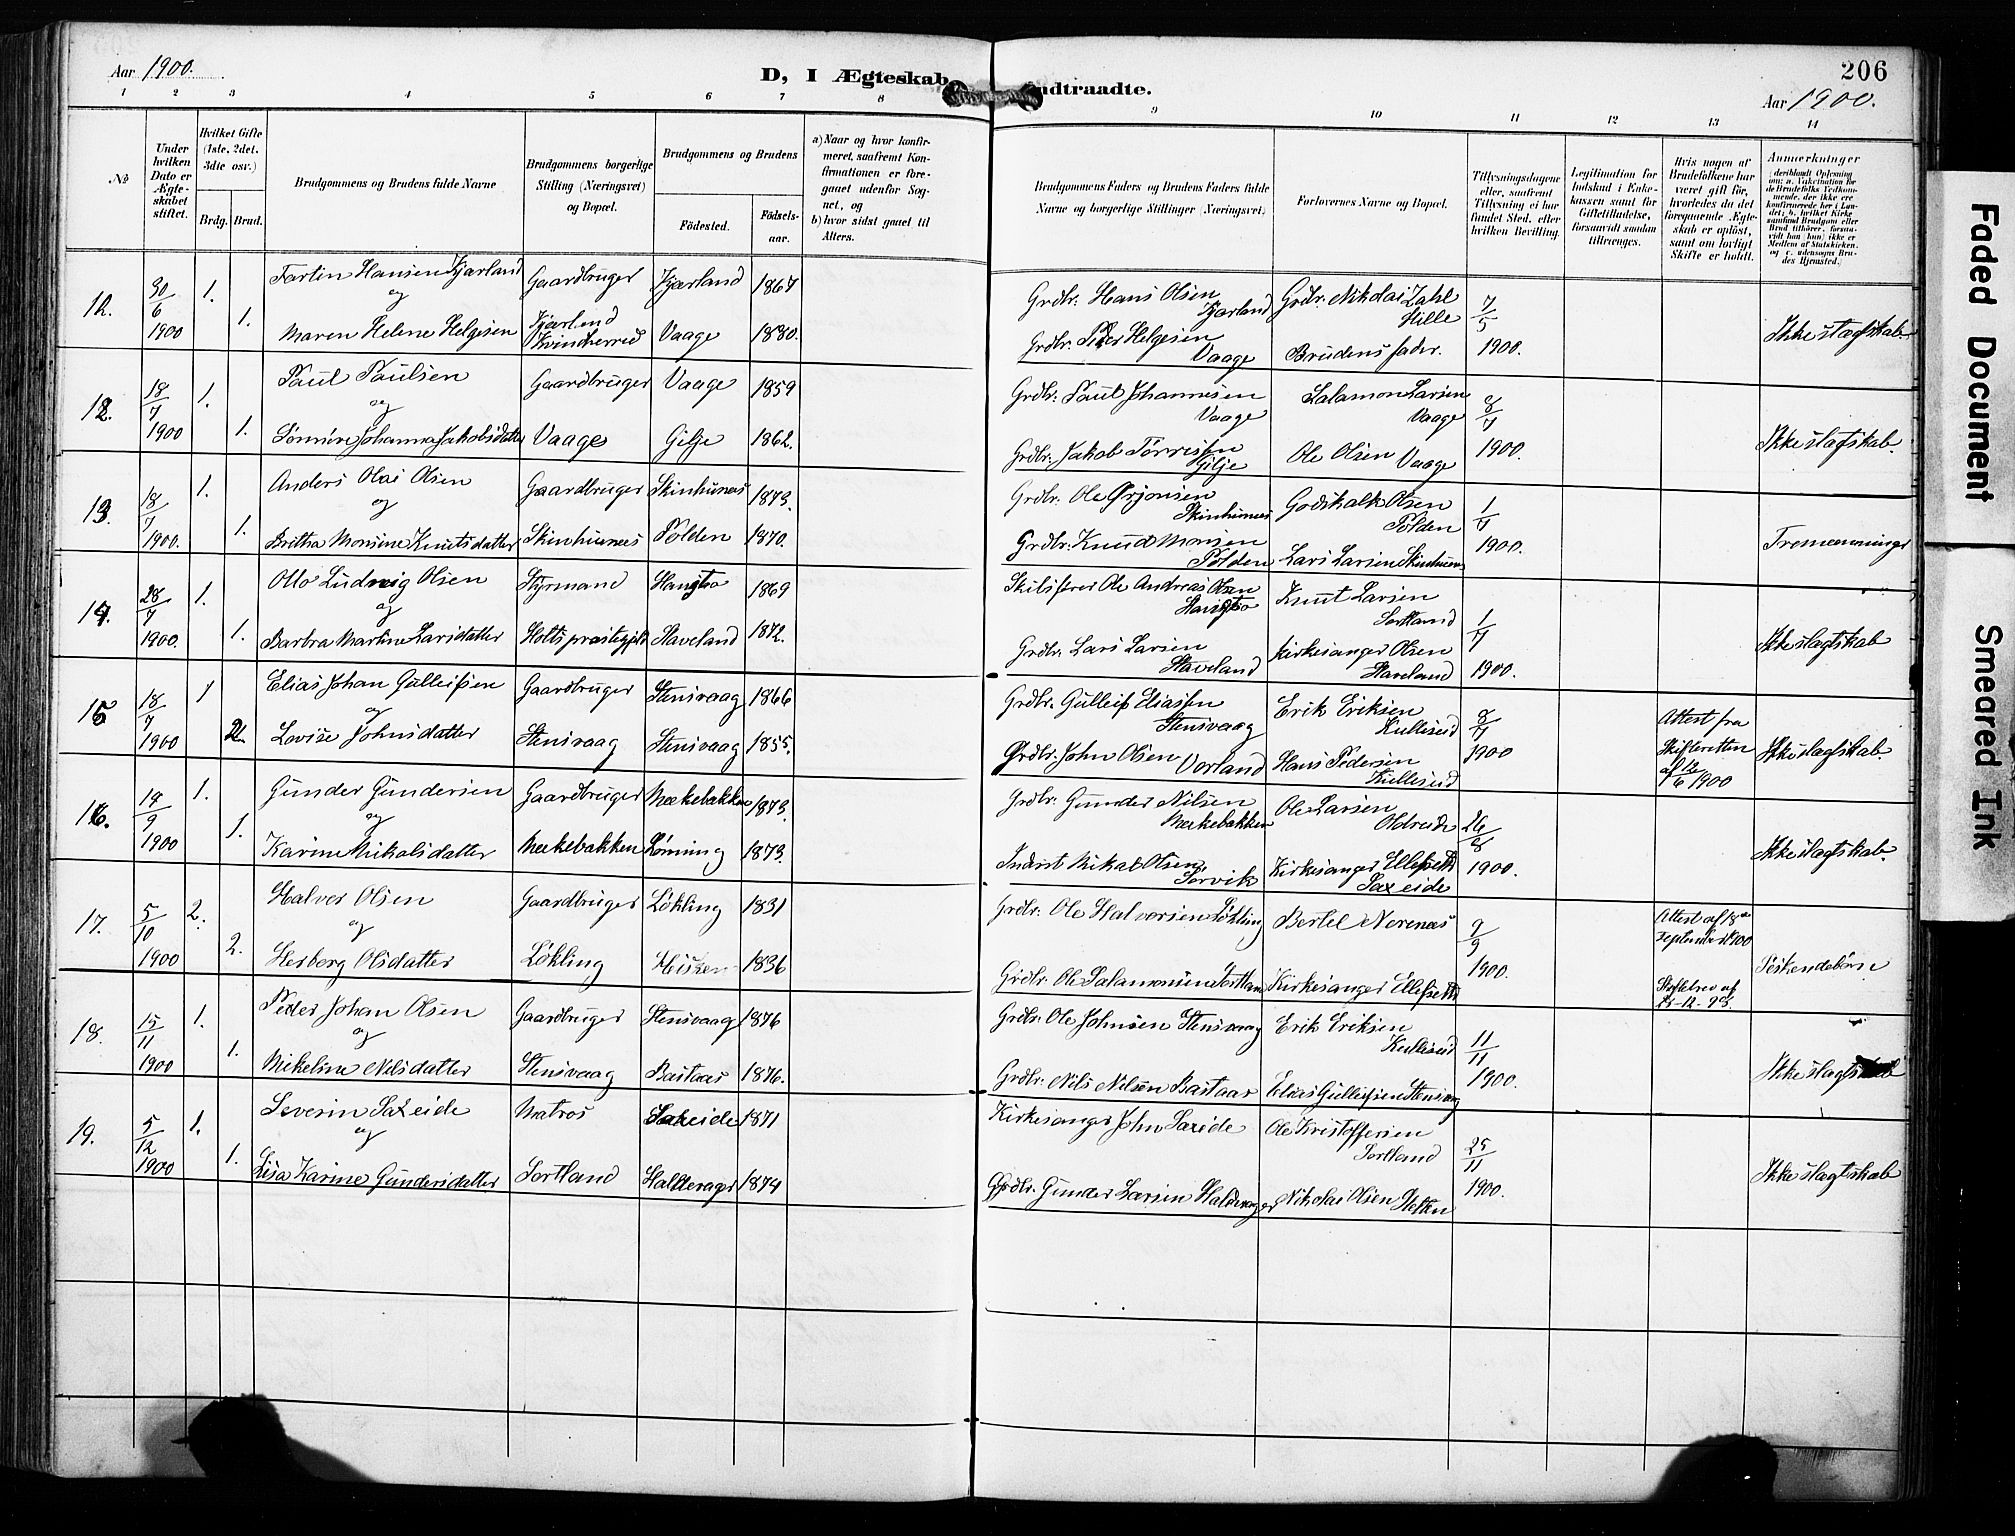 Aar 1900.
D, I Ægteskab
ndtraadte.
206
Aar 1900.
1 2 3 4 5 6 7 8 9 10 11 12 13 14
No
Under hvilken Dato er Ægteskabet stiftet.
Hvilket Gifte (1ste, 2det, 3die osv.)
Brdg. Brud.
Brudgommens og Brudens fulde Navne
Brudgommens borgerlige Stilling (Næringsvei) og Bopæl.
Brudgommens og Brudens
Fødested.
Fødselsaar.
a) Naar og hvor konfirmeret, saafremt Konfirmationen er foregaaet udenfor Sognet, og
b) hvor sidst gaaet til Alters.
Brudgommens Faders og Brudens Faders fulde Navne og borgerlige Stillinger (Næringsvei)
Forlovernes Navne og Bopæl.
Tillysningsdagene eller, saafremt Tillysning ei har fundet Sted, efter hvilken Bevilling.
Legitimation for Indskud i Enkekassen samt for Giftetilladelse, forsaavidt saadan tiltrænges.
Hvis nogen af Brudefolkene har været gift før, hvorledes da det foregaaende Ægteskab er opløst, samt om lovligt Skifte er holdt.
Anmærkninger
30/6 1900 1. 1.
Fartin Hansen Kjærland
og
Maren Helene Helgesen
Gaardbruger
Kjærland
Kvindherred
Kjærland 1867
Vaage 1880.
Grdbr. Hans Olsen
Kjærland
Grdbr. Peder Helgesen
Vaage
Grdbr. Nikolai Zahl
Hille
Brudens fader.
7/5
1900.
Ikke slægtskab
12. 18/7 1900 1. 1.
Paul Paulsen
og
Johanna Jakobsdatter
Gaardbruger
Vaage
Vaage 1859
Gilje 1862.
Grdbr. Paul Johannesen
Vaage
Grdbr. Jakob Tørrisen
Gilje
Salamon Larsen
Vaage
Ole Olsen Vaage
8/7
1900.
Ikke slagtskab.
13. 18/7 1900. 1. 1.
Anders Olai Olsen
og
Britha Monsine Knutsdatter
Gaardbruger
Skinhusnes
Skinhusnes 1873.
Tolden 1870.
Grdbr. Ole Ørjansen
Skinhusnes
Grdbr. Knud Monsen
Tolden
Godskalk Olsen
Tolden
Lars Larsen Skinhusnes
1/7
1900.
Tremenninger
14. 28/7 1900. 1. 1.
Otto Ludvig Olsen
og
Barbra Martine Larsdatter
Styrmand
Holts præstegjeld
1869
Staveland 1872.
Skibsfører Ole Andreas Olsen
Grdbr. Lars Larsen
Staveland
Knut Larsen
Sortland
Kirkesanger Olsen
Staveland
1/7
1900.
Ikke slagtskab
15 18/7 1900 1 2.
Elias Johan Gulleifsen
og
Lovise Johnsdatter
Gaardbruger
Stensvaag
Stensvaag 1866
Stensvaag 1855.
Grdbr. Gulleif Eliassen
Stensvaag
Grdbr. John Olsen
Vorland
Erik Eriksen
Kulleseid
Hans Pedersen
Kulleseid
8/7
1900
Attest fra
Skifteretten
af 12/6 1900
Ikke slagtskab.
16. 19/9 1900 1. 1.
Gunder Gundersen
og
Karine Mikalsdatter
Gaardbruger
Mækebakken
Mækebakken 1873.
Lønning 1873.
Grdbr. Gunder Nilsen
Mækebakken
Inderst Mikal Olsen
Torvik
Ole Larsen
Oldereide
Kirkesanger Ellefseth
Saxeide
26/8
1900.
Ikke slagtskab.
17. 5/10 1900 2. 2.
Halvor Olsen
og
Herborg Olsdatter
Gaardbruger
Løkling
Løkling 1831
1836
Grdbr. Ole Halvorsen Løkling
Grdbr. Ole Salamonsen Sortland
Bertel Nerenæs
Kirkesanger Ellefseth
9/9
1900.
Attest af 18de
September 1900
Skiftebrev af
Søskendebørn
18. 15/11 1900 1. 1.
Peder Johan Olsen
og
Mikeline Nilsdatter
Gaardbruger
Stensvaag
Stensvaag 1876
Bastaas 1876.
Grdbr. Ole Johnsen Stensvaag
Grdbr. Nils Nilsen Bastaas
Erik Eriksen
Kulleseid
Elias Gulleifsen Stensvaag
11/11
1900.
Ikke slagtskab
19. 5/12 1900 1. 1.
Severin Saxeide
og
Lisa Karine Gundersdatter
Matros
Sortland
Saxeide 1871
Haldorager 1874
Kirkesanger John Saxeide
Grdbr. Gunder Larsen
Ole Kristoffersen
Sortland
Nikolai Olsen
25/11
1900.
Ikke slagtskab
Faded Document
Smeared Ink